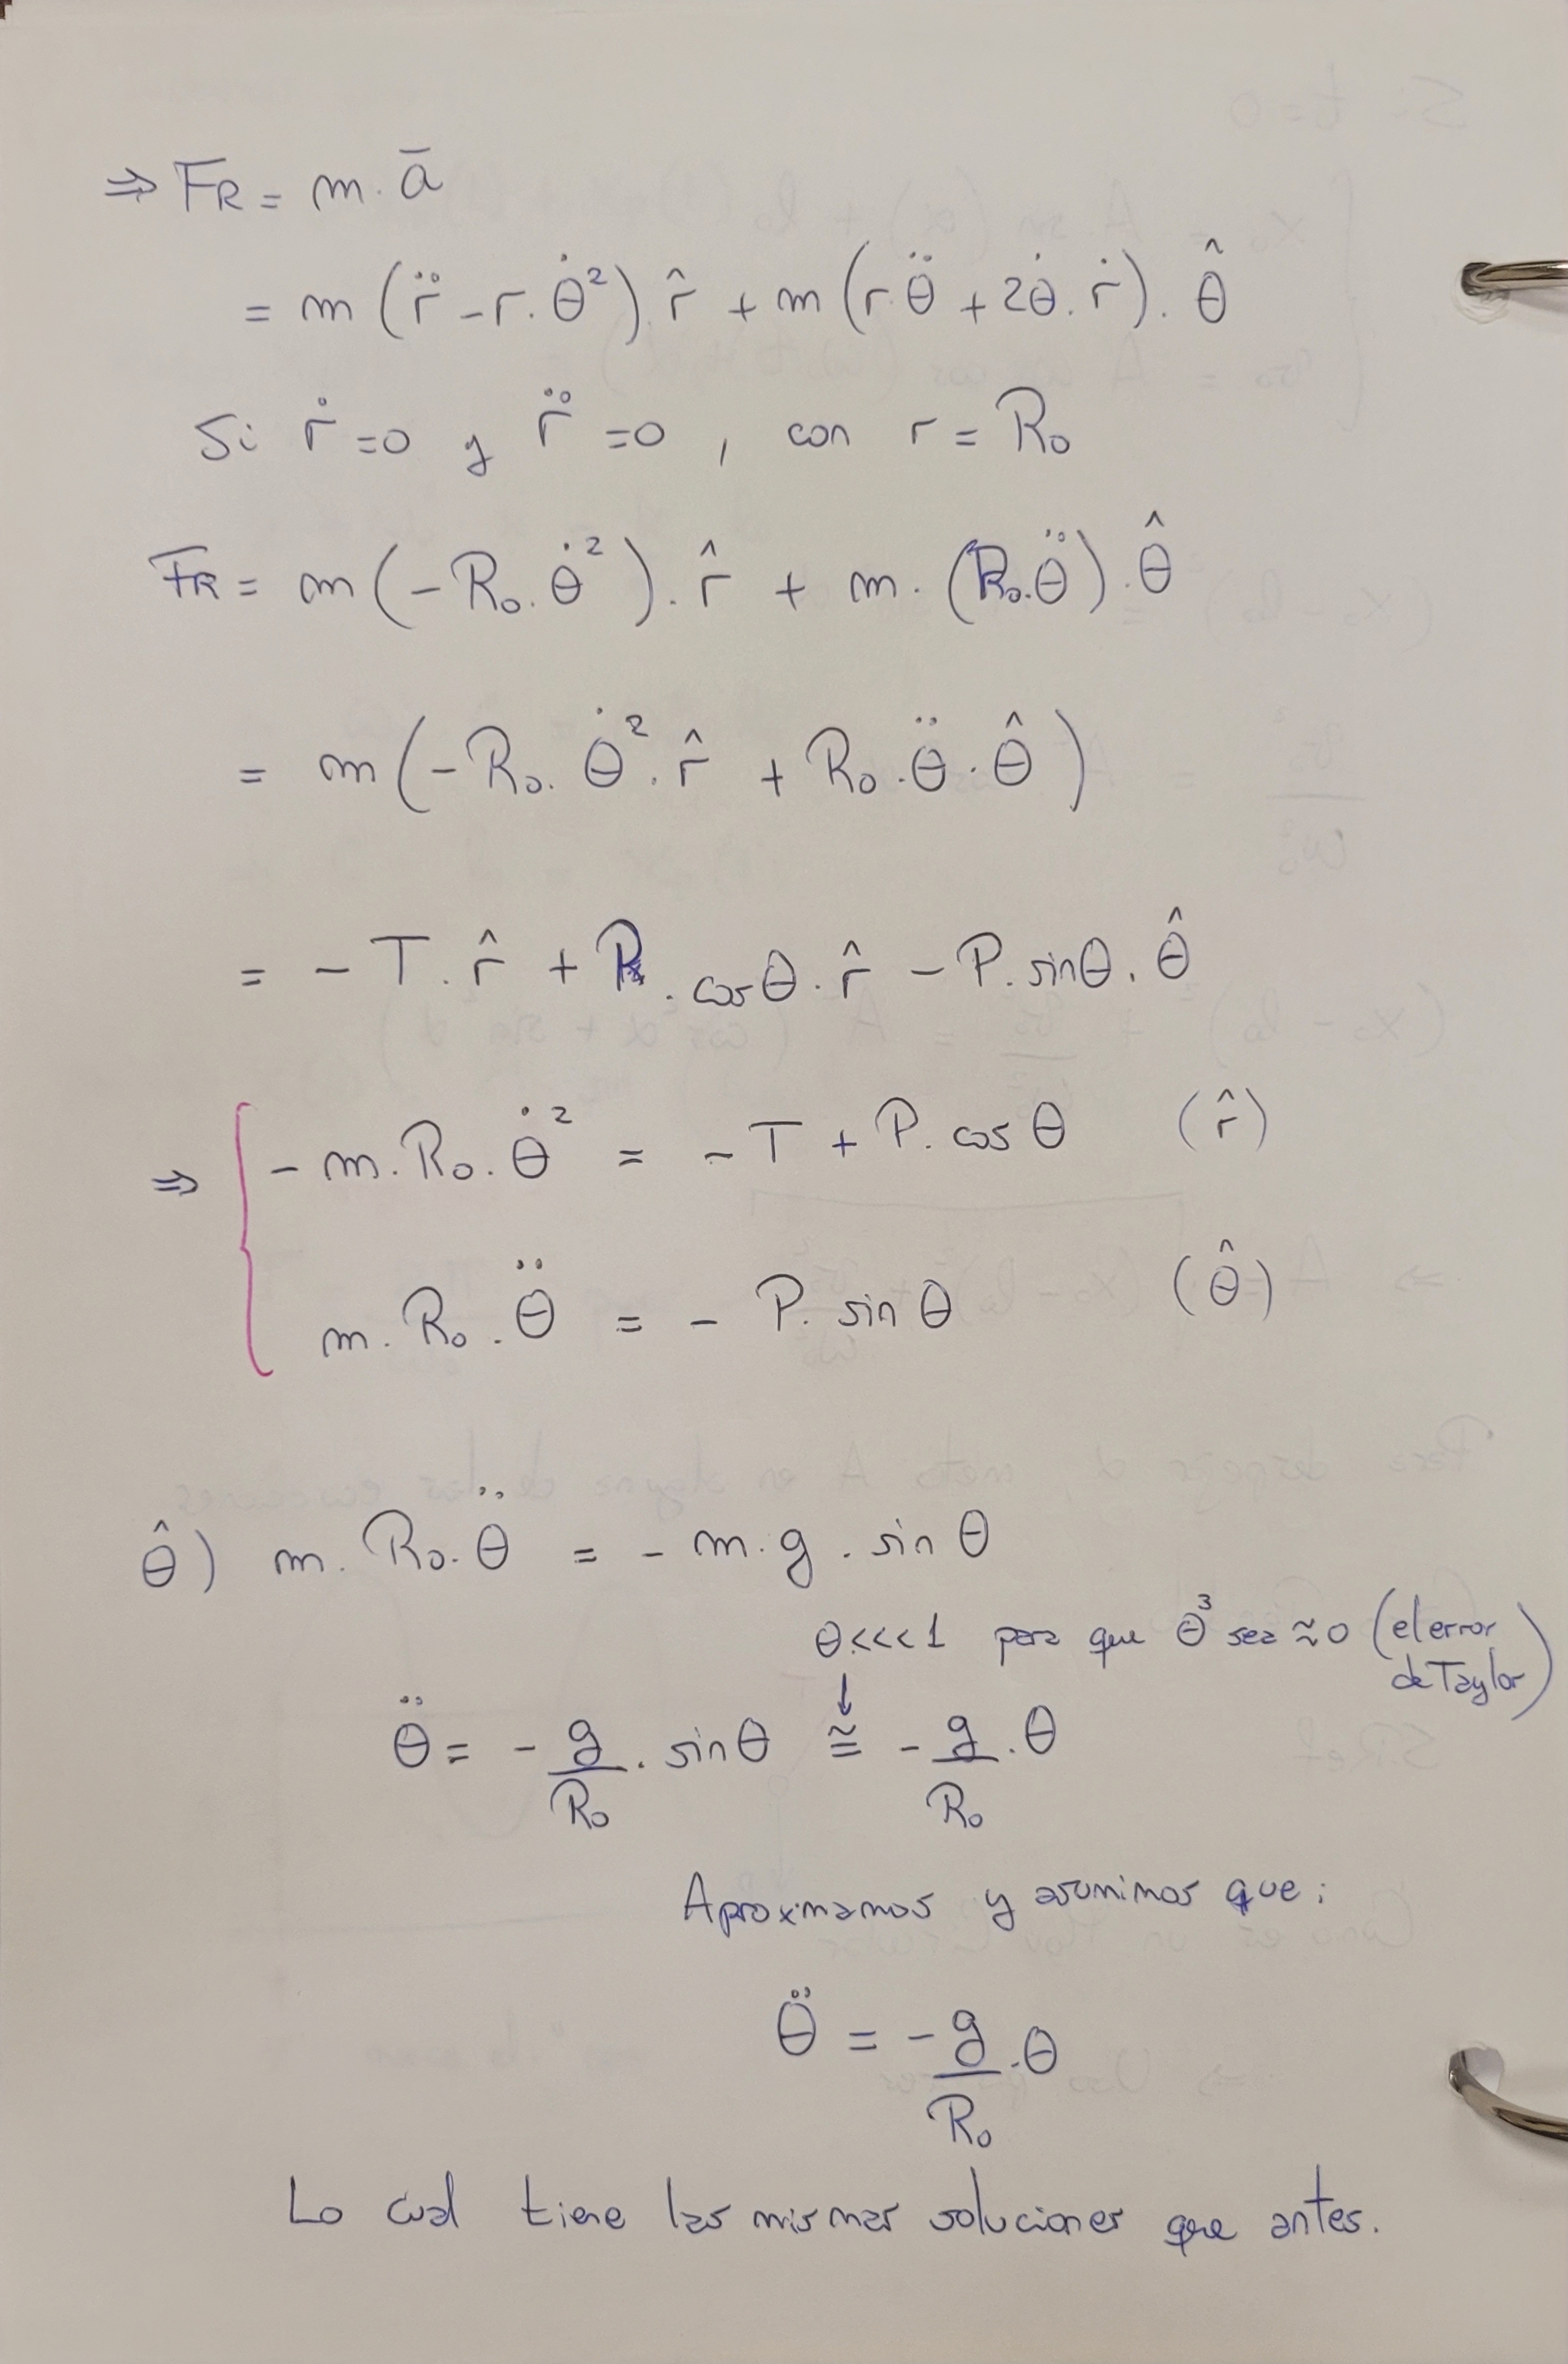 ⇒ FR = m. ā
= m (r̈ - r. θ̇²). r̂ + m (r.θ̈ + 2θ̇. ṙ). θ̂
Si ṙ = 0 y r̈ = 0 , con r = R₀
FR = m (-R₀. θ̇²). r̂ + m. (R₀.θ̈). θ̂
= m (-R₀. θ̇². r̂ + R₀. θ̈. θ̂)
= - T. r̂ + P. cosθ. r̂ - P. sinθ. θ̂
⇒ { - m. R₀. θ̇² = - T + P. cos θ (r̂)
m. R₀. θ̈ = - P. sin θ (θ̂)
θ̂) m. R₀. θ̈ = - m. g. sin θ
θ <<< 1 para que θ³ sea ≈ 0 (el error de Taylor)
↓
θ̈ = - g/R₀ . sinθ ≅ - g/R₀ . θ
Aproximamos y asumimos que:
θ̈ = - g/R₀ . θ
Lo cual tiene las mismas soluciones que antes.